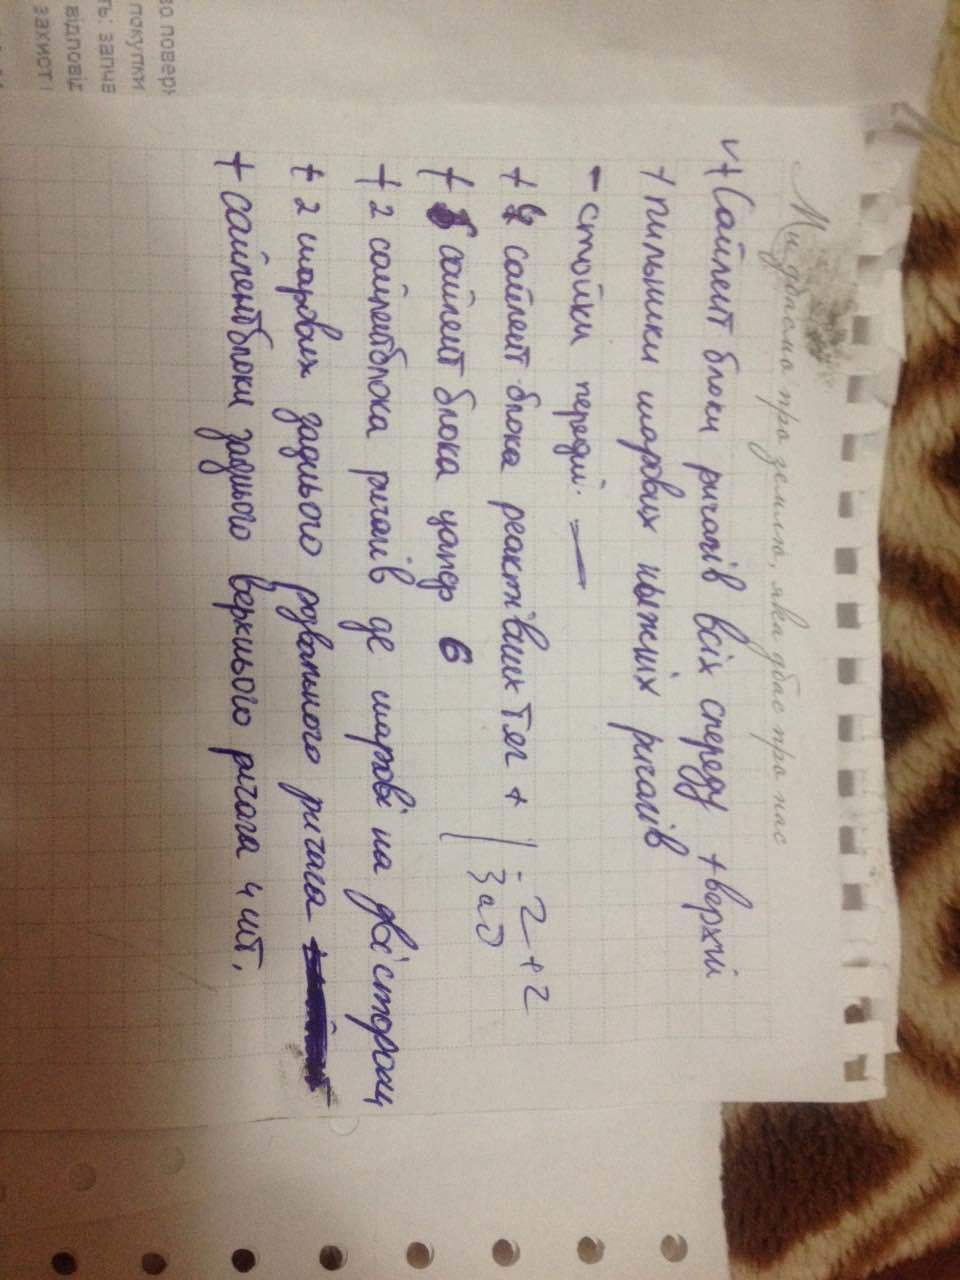 Ми дбаємо про землю, яка дбає про нас
v+ Сайлент блоки ричагів всіх спереду + верхні
+ пильники шарових ныжніх ричагів
- стойки передні. —
+ 4 сайлент блока реактівних тяг + | - 2 + 2
+ сайлент блока цапф 6 | зад
+ 2 сайлентблока ричагів де шарові на дві сторони
+ 2 шарових заднього розвального ричага
+ сайлентблоки заднього верхнього ричага 4 шт.
во поверн
покупки
ть: запча
відповід
захист і